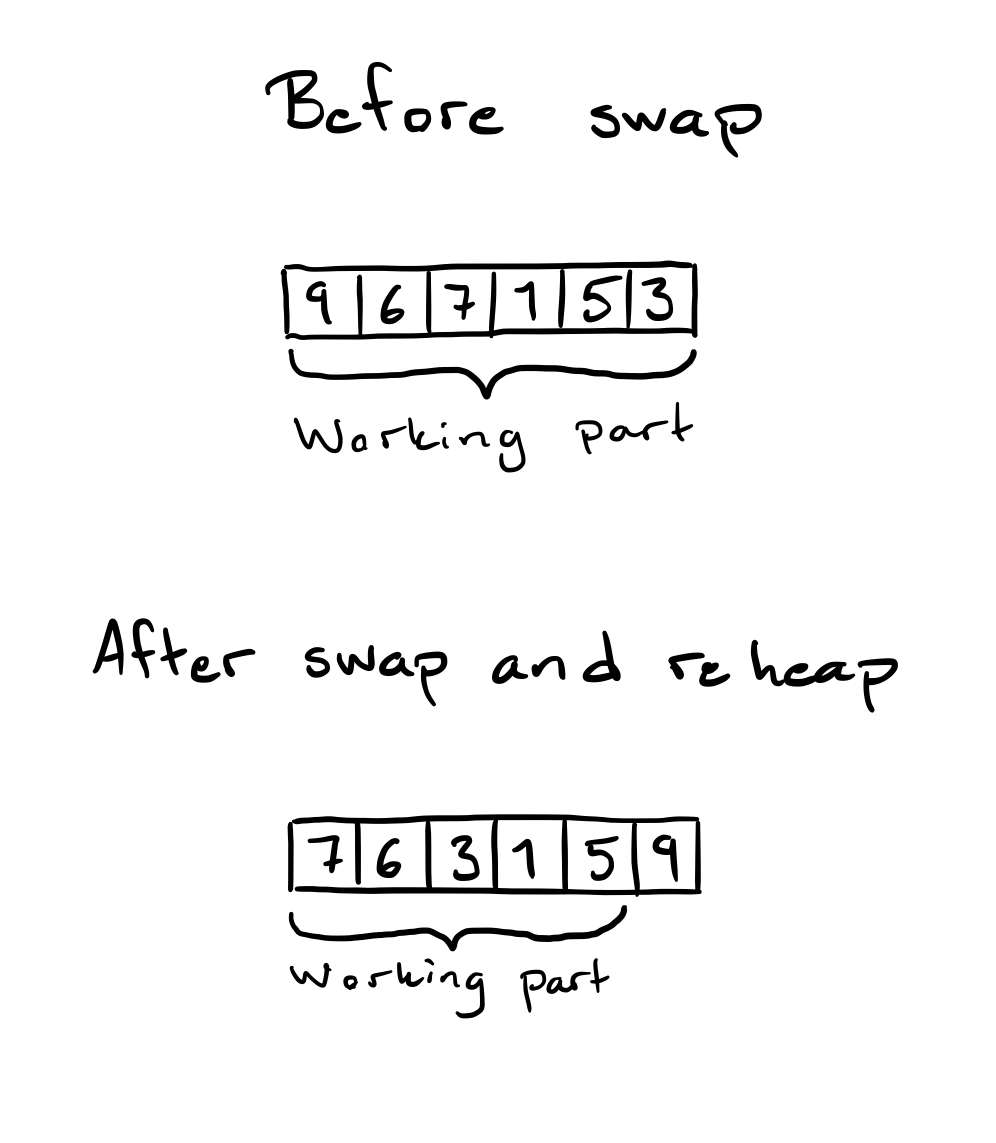 Before swap
9 6 7 1 5 3
Working part
After swap and reheap
7 6 3 1 5 9
Working part